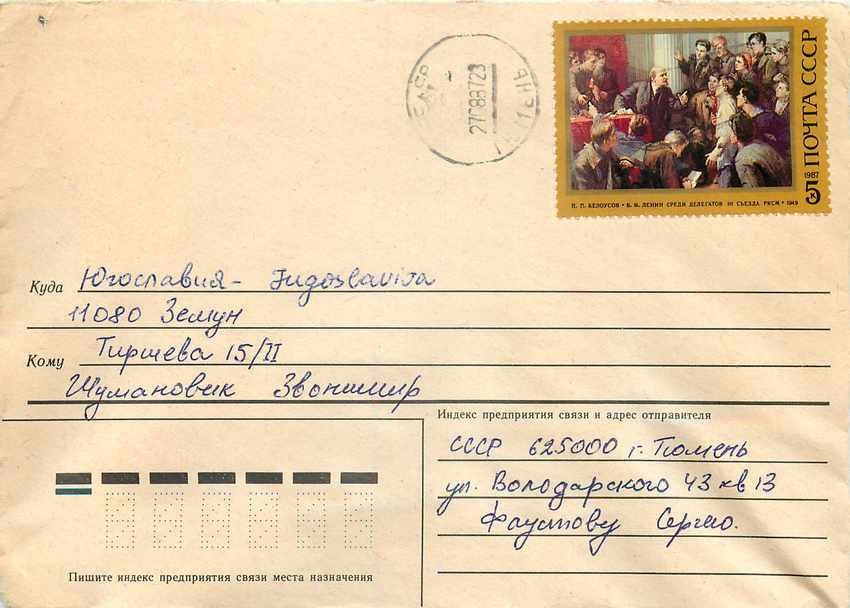 ПОЧТА СССР
1987
5 к
П. П. БЕЛОУСОВ • В. И. ЛЕНИН СРЕДИ ДЕЛЕГАТОВ III СЪЕЗДА РКСМ • 1949
27088723
Куда Югославия - Jugoslavija
11080 Земун
Кому Тиршева 15/II
Шумановик Звонимир
Индекс предприятия связи и адрес отправителя
СССР 625000 г. Тюмень
ул. Володарского 43 кв 13
Фаустову Сергею.
Пишите индекс предприятия связи места назначения